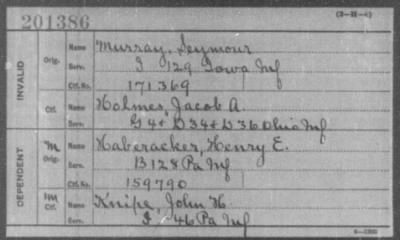 (3-H-4)
201386
INVALID
Orig.
Name Murray, Seymour
Serv. I 129 Iowa Inf
Ctf. No. 171369
Ctf. Name Holmes, Jacob A.
Serv. G 4 & D 34 & D 36 Ohio Inf
DEPENDENT
M Orig.
Name Haberacker, Henry E.
Serv. B 128 Pa Inf
Ctf. No. 159790
M Ctf. Name Knipe, John H
Serv. I 46 Pa Inf